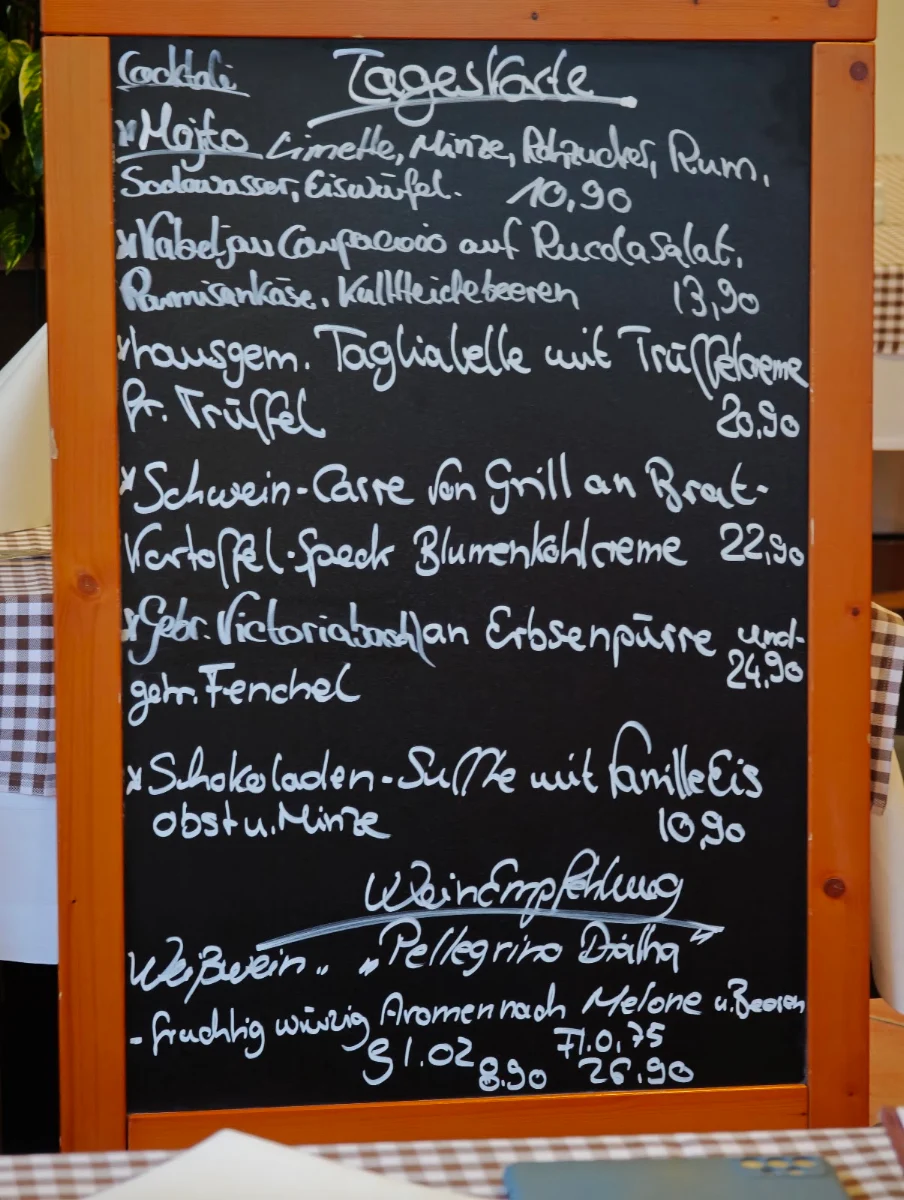 Cocktail Tageskarte
*Mojito Limette, Minze, Rohrzucker, Rum,
Sodawasser, Eiswürfel. 10,90
*Kabeljau Carpaccio auf Rucola Salat,
Parmisankäse, Kullturheidebeeren 13,90
*hausgem. Tagliatelle mit Trüffelcreme
fr. Trüffel 20,90
*Schwein-Carre von Grill an Brat-
Kartoffel-Speck Blumenkohlcreme 22,90
*Gebr. Victoriabarsch an Erbsenpürre und-
gebr. Fenchel 24,90
*Schokoladen-Suffle mit Vanille Eis
obst u. Minze 10,90
Wein Empfehlung
Weißwein.. „Pellegrino"
-fruchtig würzig Aromen nach Melone u. Beeren
Gl. 0,2 Fl. 0,75
8.90 26.90